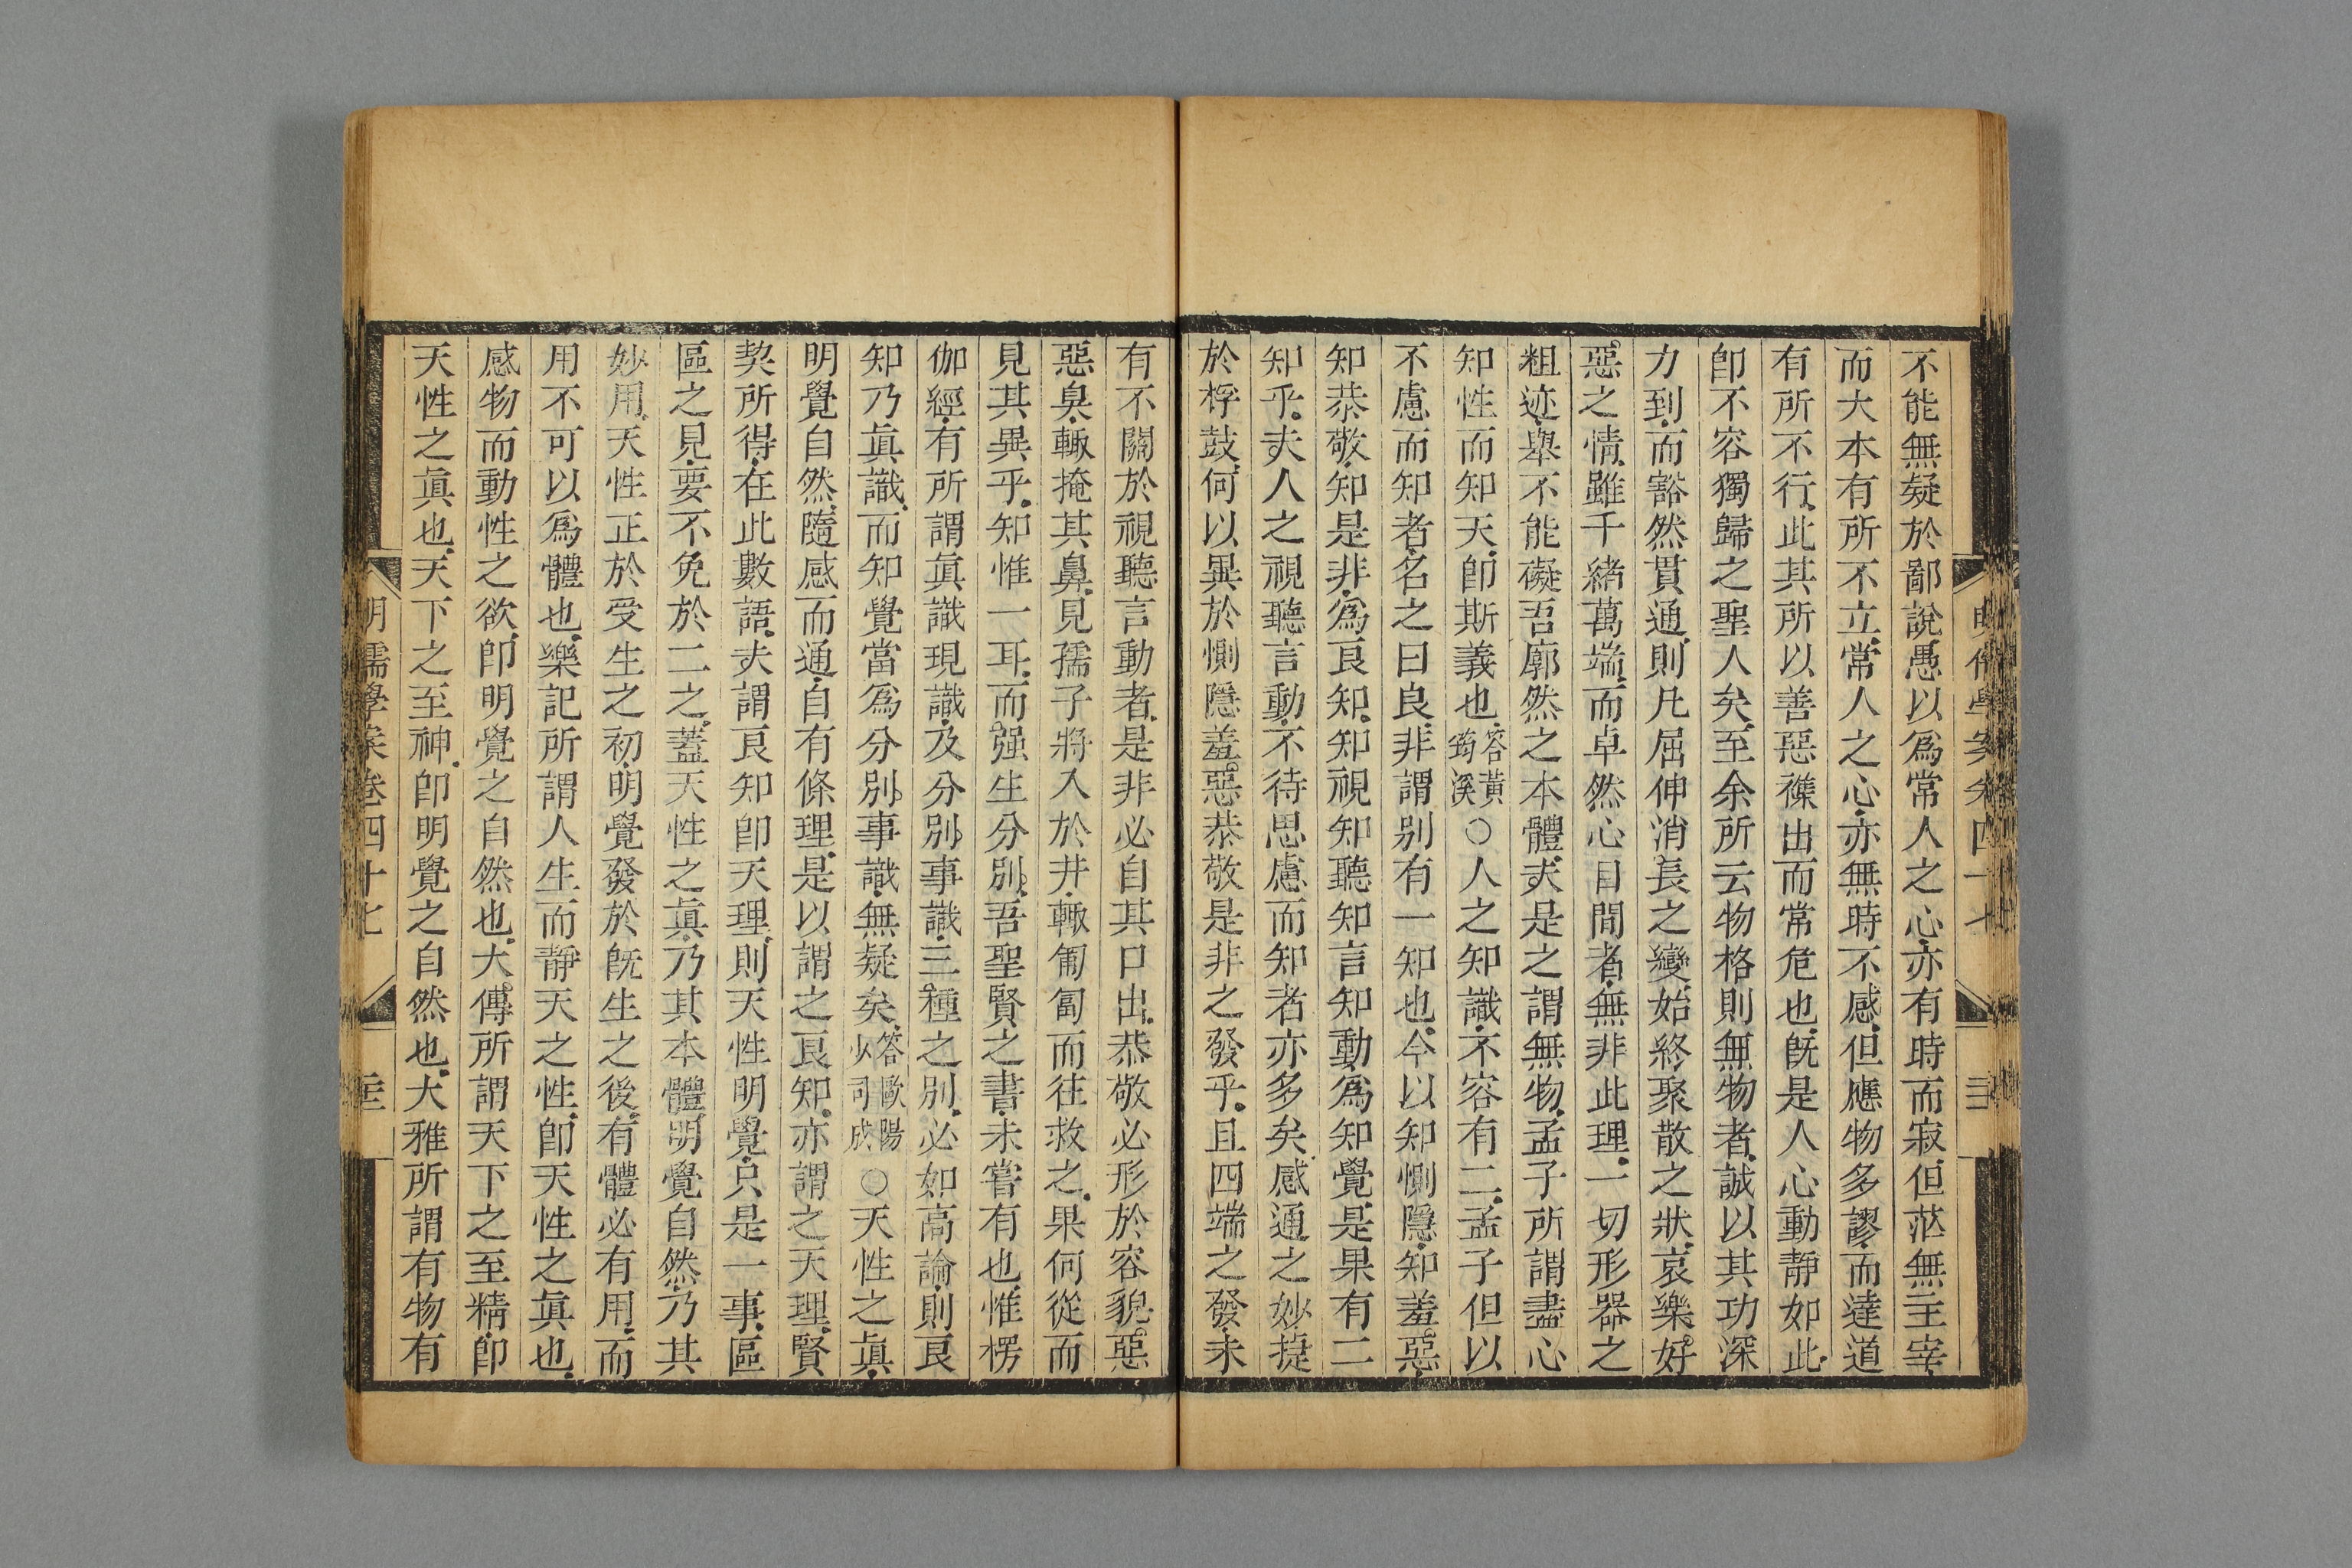 不能無疑於鄙說愚以爲常人之心亦有時而寂但茫無主宰
而大本有所不立常人之心亦無時不感但應物多謬而達道
有所不行此其所以善惡襍出而常危也旣是人心動靜如此
卽不容獨歸之聖人矣至余所云物格則無物者誠以其功深
力到而豁然貫通則凡屈伸消長之變始終聚散之狀哀樂好
惡之情雖千緒萬端而卓然心目閒者無非此理一切形器之
粗迹舉不能礙吾廓然之本體夫是之謂無物孟子所謂盡心
知性而知天卽斯義也答黃筠溪○人之知識不容有二孟子但以
不慮而知者名之曰良非謂别有一知也今以知惻隱知羞惡
知恭敬知是非爲良知知視知聽知言知動爲知覺是果有二
知乎夫人之視聽言動不待思慮而知者亦多矣感通之妙捷
於桴鼓何以異於惻隱羞惡恭敬是非之發乎且四端之發未
有不關於視聽言動者是非必自其口出恭敬必形於容貌惡
惡臭輒掩其鼻見孺子將入於井輒匍匐而往救之果何從而
見其異乎知惟一耳而强生分别吾聖賢之書未嘗有也惟楞
伽經有所謂眞識現識及分别事識三種之别必如高論則良
知乃眞識而知覺當爲分别事識無疑矣答歐陽少司成○天性之眞
明覺自然隨感而通自有條理是以謂之良知亦謂之天理賢
契所得在此數語夫謂良知卽天理則天性明覺只是一事區
區之見要不免於二之蓋天性之眞乃其本體明覺自然乃其
妙用天性正於受生之初明覺發於旣生之後有體必有用而
用不可以爲體也樂記所謂人生而靜天之性卽天性之眞也
感物而動性之欲卽明覺之自然也大傳所謂天下之至精卽
天性之眞也天下之至神卽明覺之自然也大雅所謂有物有
明儒學案卷四十七